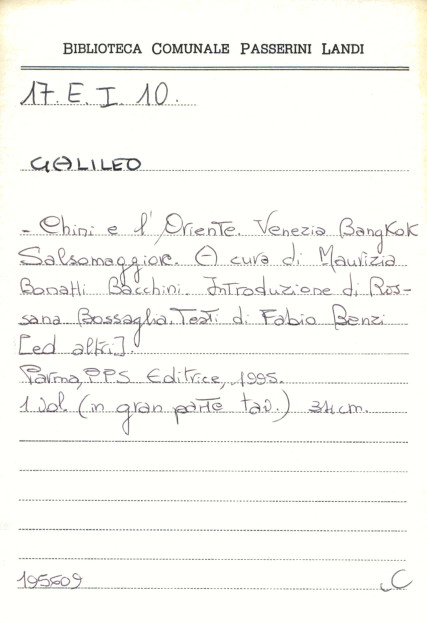 BIBLIOTECA COMUNALE PASSERINI LANDI
17. E. I. 10.
GALILEO
- Chini e l'Oriente. Venezia Bangkok
Salsomaggiore. A cura di Maurizia
Bonatti Bacchini. Introduzione di Ros-
sana Bossaglia. Testi di Fabio Benzi
[ed altri].
Parma, PPS Editrice, 1995.
1 vol. (in gran parte tav.) 34 cm.
195609
C